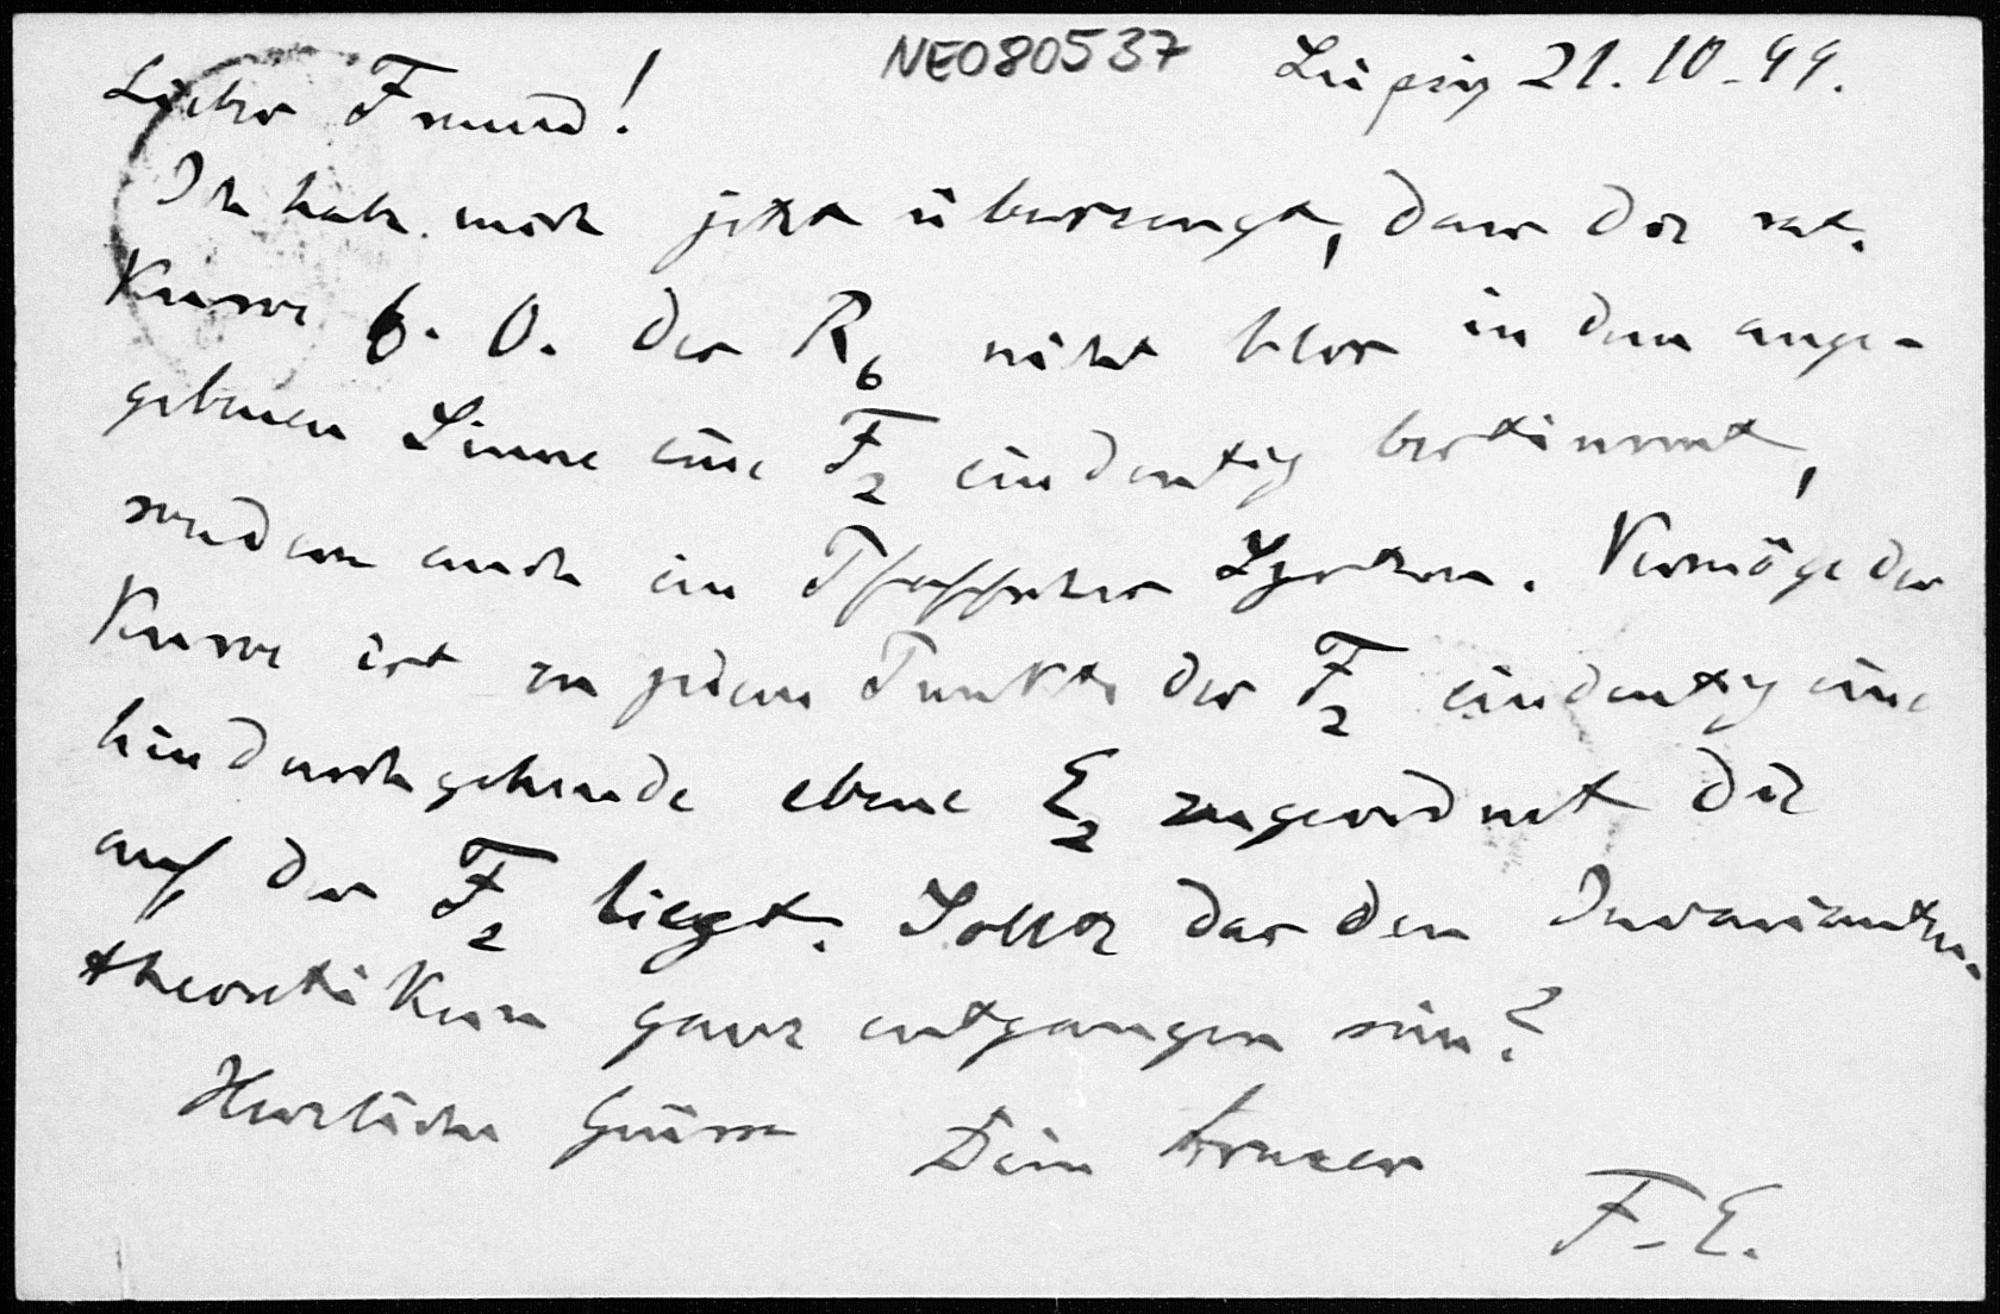 NE080537
Leipzig 21.10.99.
Lieber Freund!
Ich habe mich jetzt überzeugt, dass die rat.
Kurve 6. O. des R6 nicht blos in dem ange-
gebenen Sinne eine F2 eindeutig bestimmt,
sondern auch ein Pfaffsches System. Vermöge der
Kurve ist zu jedem Punkte der F2 eindeutig eine
hindurchgehende ebene E2 zugeordnet die
auf der F2 liegt. Sollte das den Invarianten-
theoretikern ganz entgangen sein?
Herzliche Grüsse Dein treuer
F. E.